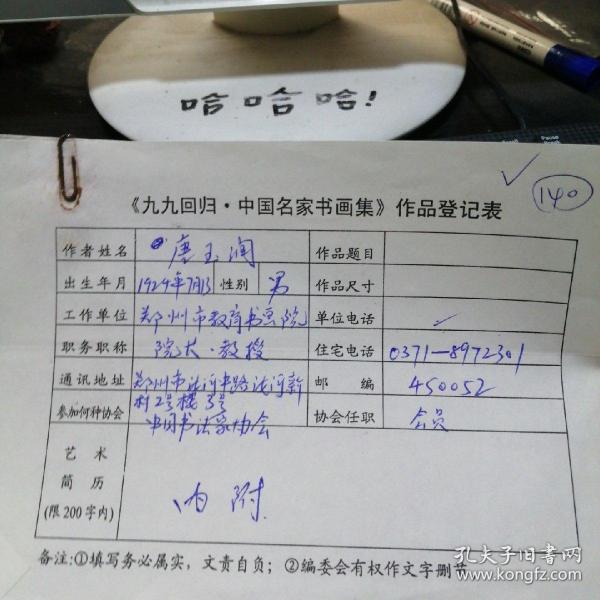 哈哈哈!
140
《九九回归·中国名家书画集》作品登记表
作者姓名 唐玉润 作品题目
出生年月 1924年7月13 性别 男 作品尺寸
工作单位 郑州市教育书画院 单位电话
职务职称 院长·教授 住宅电话 0371—8972301
通讯地址 郑州市淮河东路淮河新 邮编 450052
村2号楼5号
参加何种协会 中国书法家协会 协会任职 会员
艺术
简历 内附
(限200字内)
备注:①填写务必属实,文责自负;②编委会有权作文字删节
孔夫子旧书网
www.kongfz.com